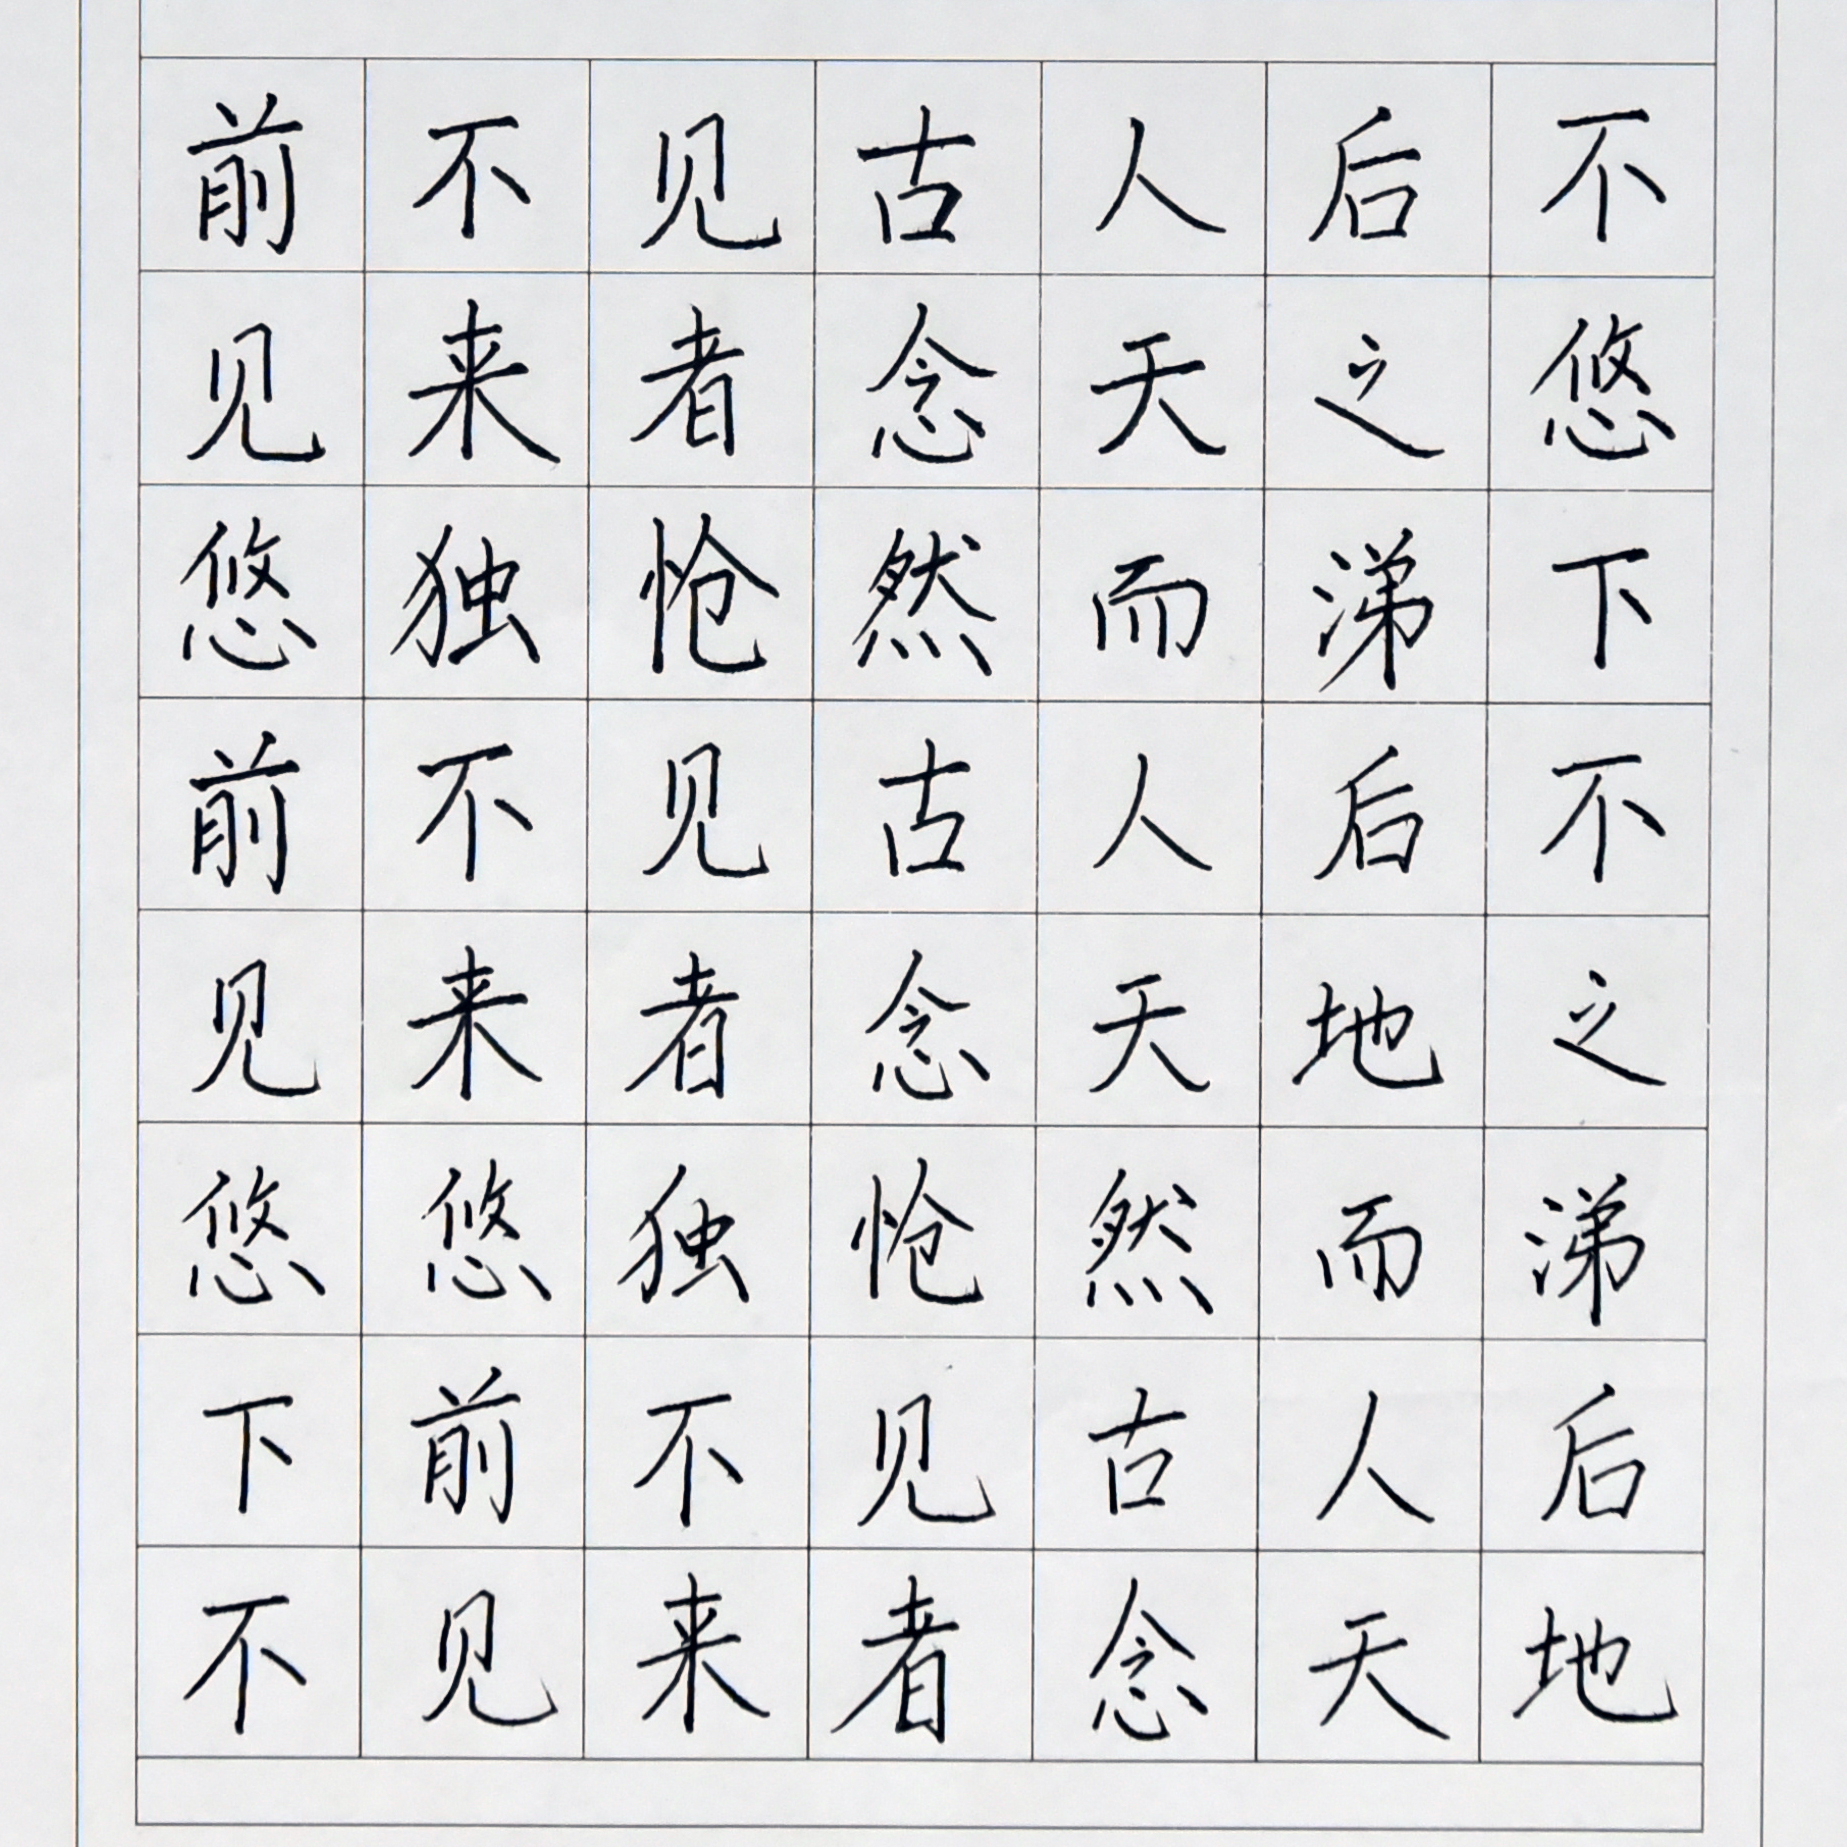 前不见古人后不
见来者念天之悠
悠独怆然而涕下
前不见古人后不
见来者念天地之
悠悠独怆然而涕
下前不见古人后
不见来者念天地